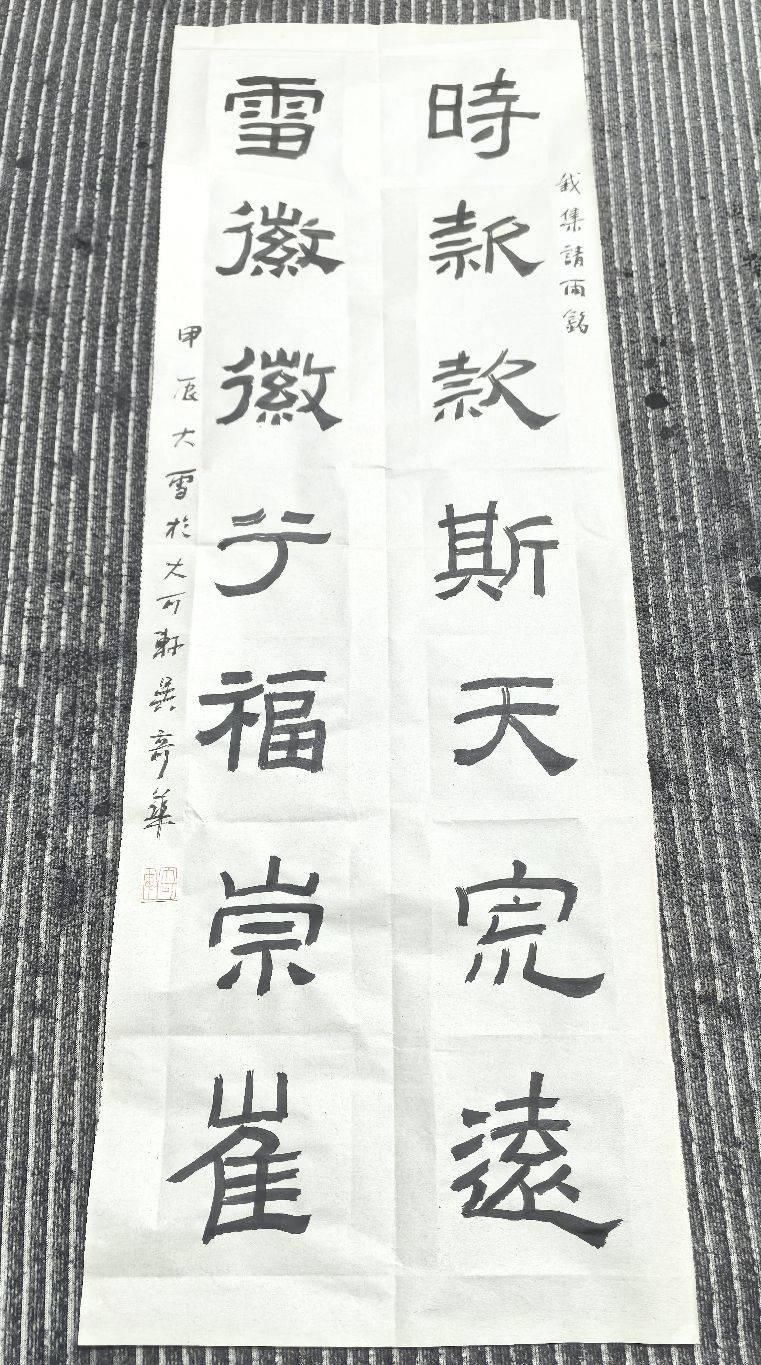 集請雨銘
時款款斯天遠
雪徽徽兮福崇崔
甲辰大雪於大可軒吳奇華